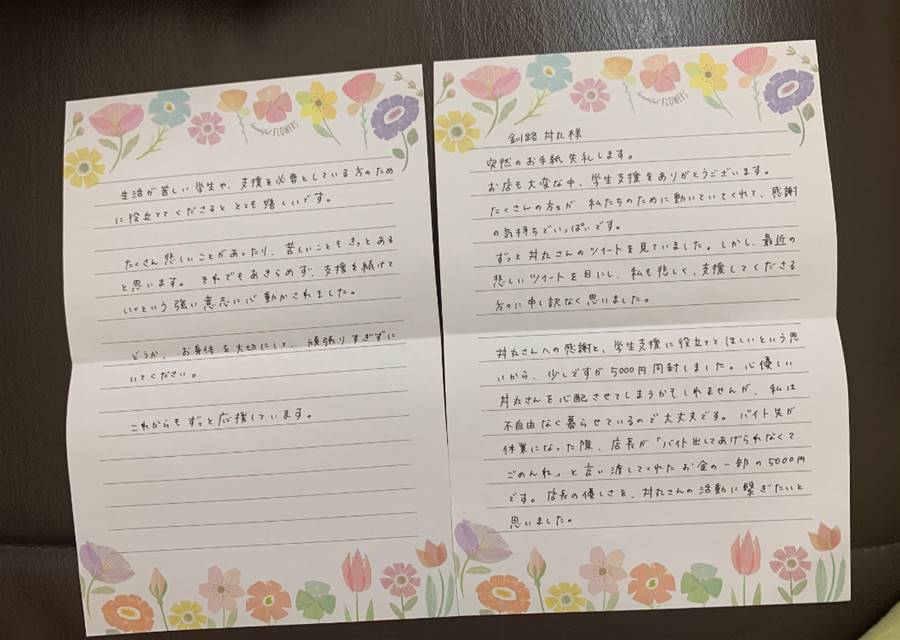 beautiful FLOWERS
釧路 丼丸様
突然のお手紙失礼します。
お店も大変な中、学生支援をありがとうございます。
たくさんの方々が 私たちのために動いていてくれて、感謝
の気持ちでいっぱいです。
ずっと丼丸さんのツイートを見ていました。しかし、最近の
悲しいツイートを目にし、私も悲しく、支援してくださる
方々に申し訳なく思いました。
丼丸さんへの感謝と、学生支援に役立ててほしいという思
いから、少しですが5000円同封しました。心優しい
丼丸さんを心配させてしまうかもしれませんが、私は
不自由なく暮らせているので大丈夫です。バイト先が
休業になった際、店長が「バイト出してあげられなくて
ごめんね」と言い渡してくれたお金の一部の5000円
です。店長の優しさを、丼丸さんの活動に繋ぎたいと
思いました。
beautiful FLOWERS
生活が苦しい学生や、支援を必要としている方のため
に役立ててくださると とても嬉しいです。
たくさん悲しいことがあったり、苦しいこともきっとある
と思います。それでもあきらめず、支援を続けて
いくという強い意志に心動かされました。
どうか、お身体を大切にして、頑張りすぎずに
いてください。
これからもずっと応援しています。